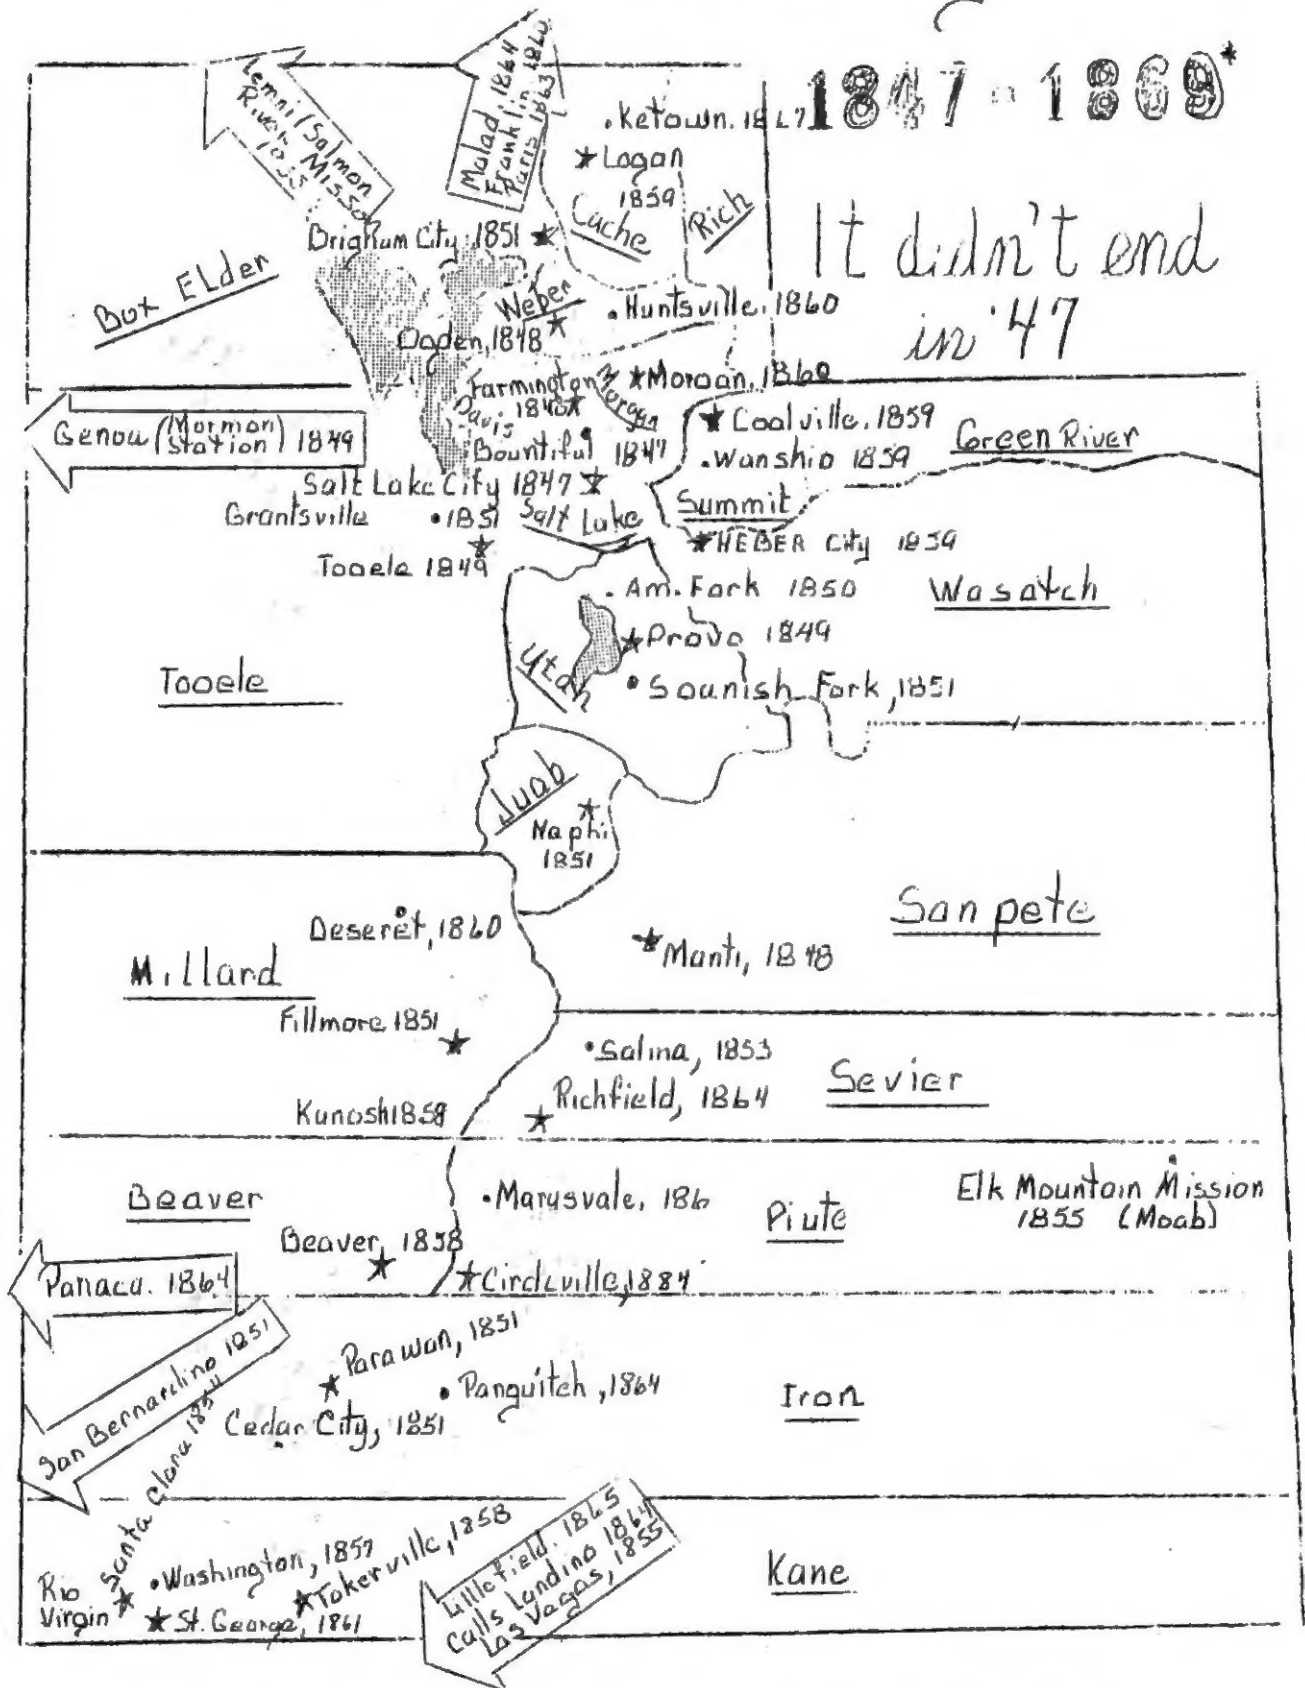 1847-1869*
It didn't end
in '47
Lemhi/Salmon
River Mission
1855
Malad, 1864
Franklin, 1860
Paris 1863
Ketown. 1867
Logan
1859
Cache
Rich
Brigham City, 1851
Box Elder
Weber
Huntsville, 1860
Ogden, 1848
Farmington
1848
Davis
Morgan
Morgan, 1860
Bountiful 1847
Coalville, 1859
Wanship 1859
Green River
Genoa (Mormon
Station) 1849
Salt Lake City 1847
Salt Lake
Summit
Grantsville 1851
HEBER City 1859
Tooele 1849
Am. Fork 1850
Wasatch
Provo 1849
Utah
Spanish Fork, 1851
Tooele
Juab
Nephi
1851
Sanpete
Deseret, 1860
Manti, 1848
Millard
Fillmore 1851
Salina, 1853
Sevier
Richfield, 1864
Kanosh 1859
Beaver
Marysvale, 186
Piute
Elk Mountain Mission
1855 (Moab)
Beaver, 1858
Circleville, 1884
Panaca. 1864
San Bernardino 1851
Parawan, 1851
Panguitch, 1864
Iron
Cedar City, 1851
Santa Clara 1854
Rio
Virgin
Washington, 1857
Tokerville, 1858
St. George, 1861
Littlefield, 1865
Calls Landing 1864
Las Vegas, 1855
Kane